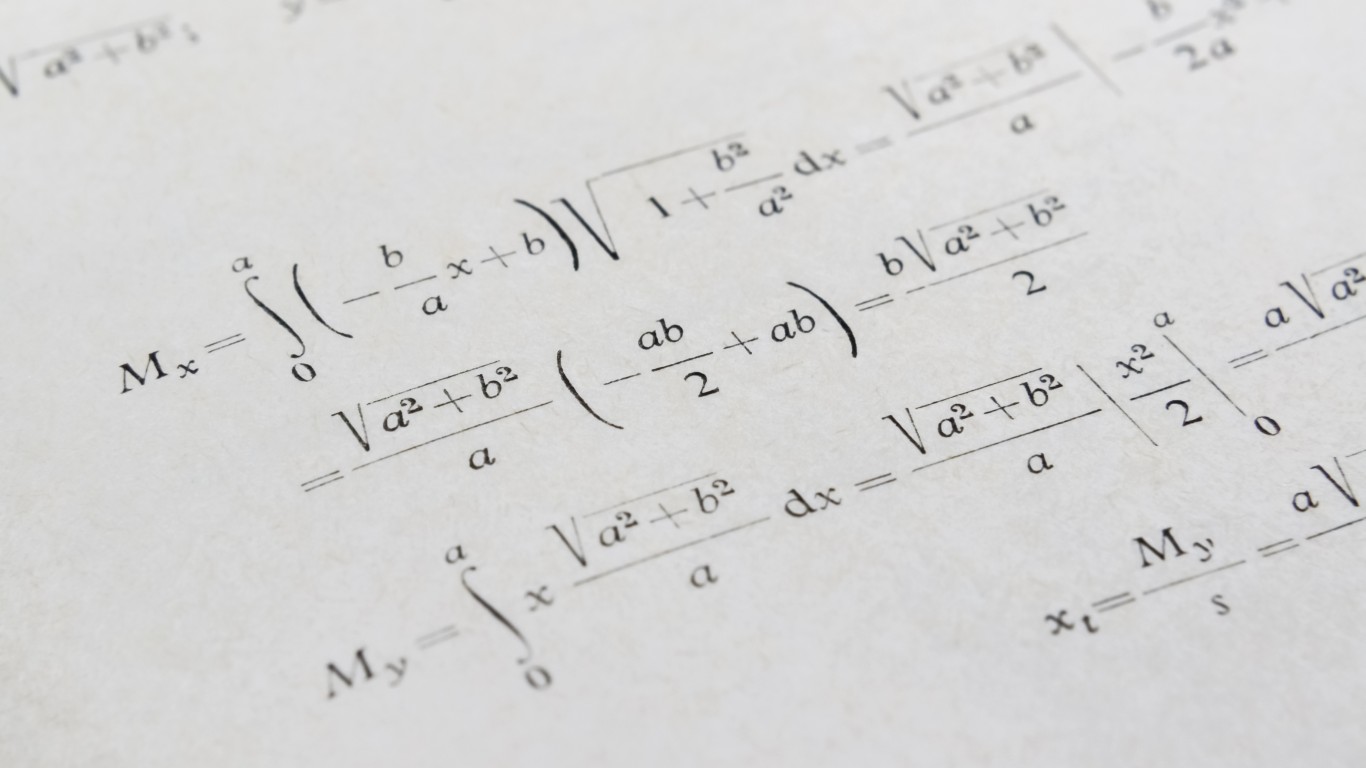 √a² + b² ;
M_x = ∫₀ᵃ (−b/a x + b) √(1 + b²/a²) dx = √(a² + b²)/a | −b/2a x²
= √(a² + b²)/a (−ab/2 + ab) = b√(a² + b²)/2
M_y = ∫₀ᵃ x √(a² + b²)/a dx = √(a² + b²)/a | x²/2 |₀ᵃ = a√a²
x_t = M_y/s = a√